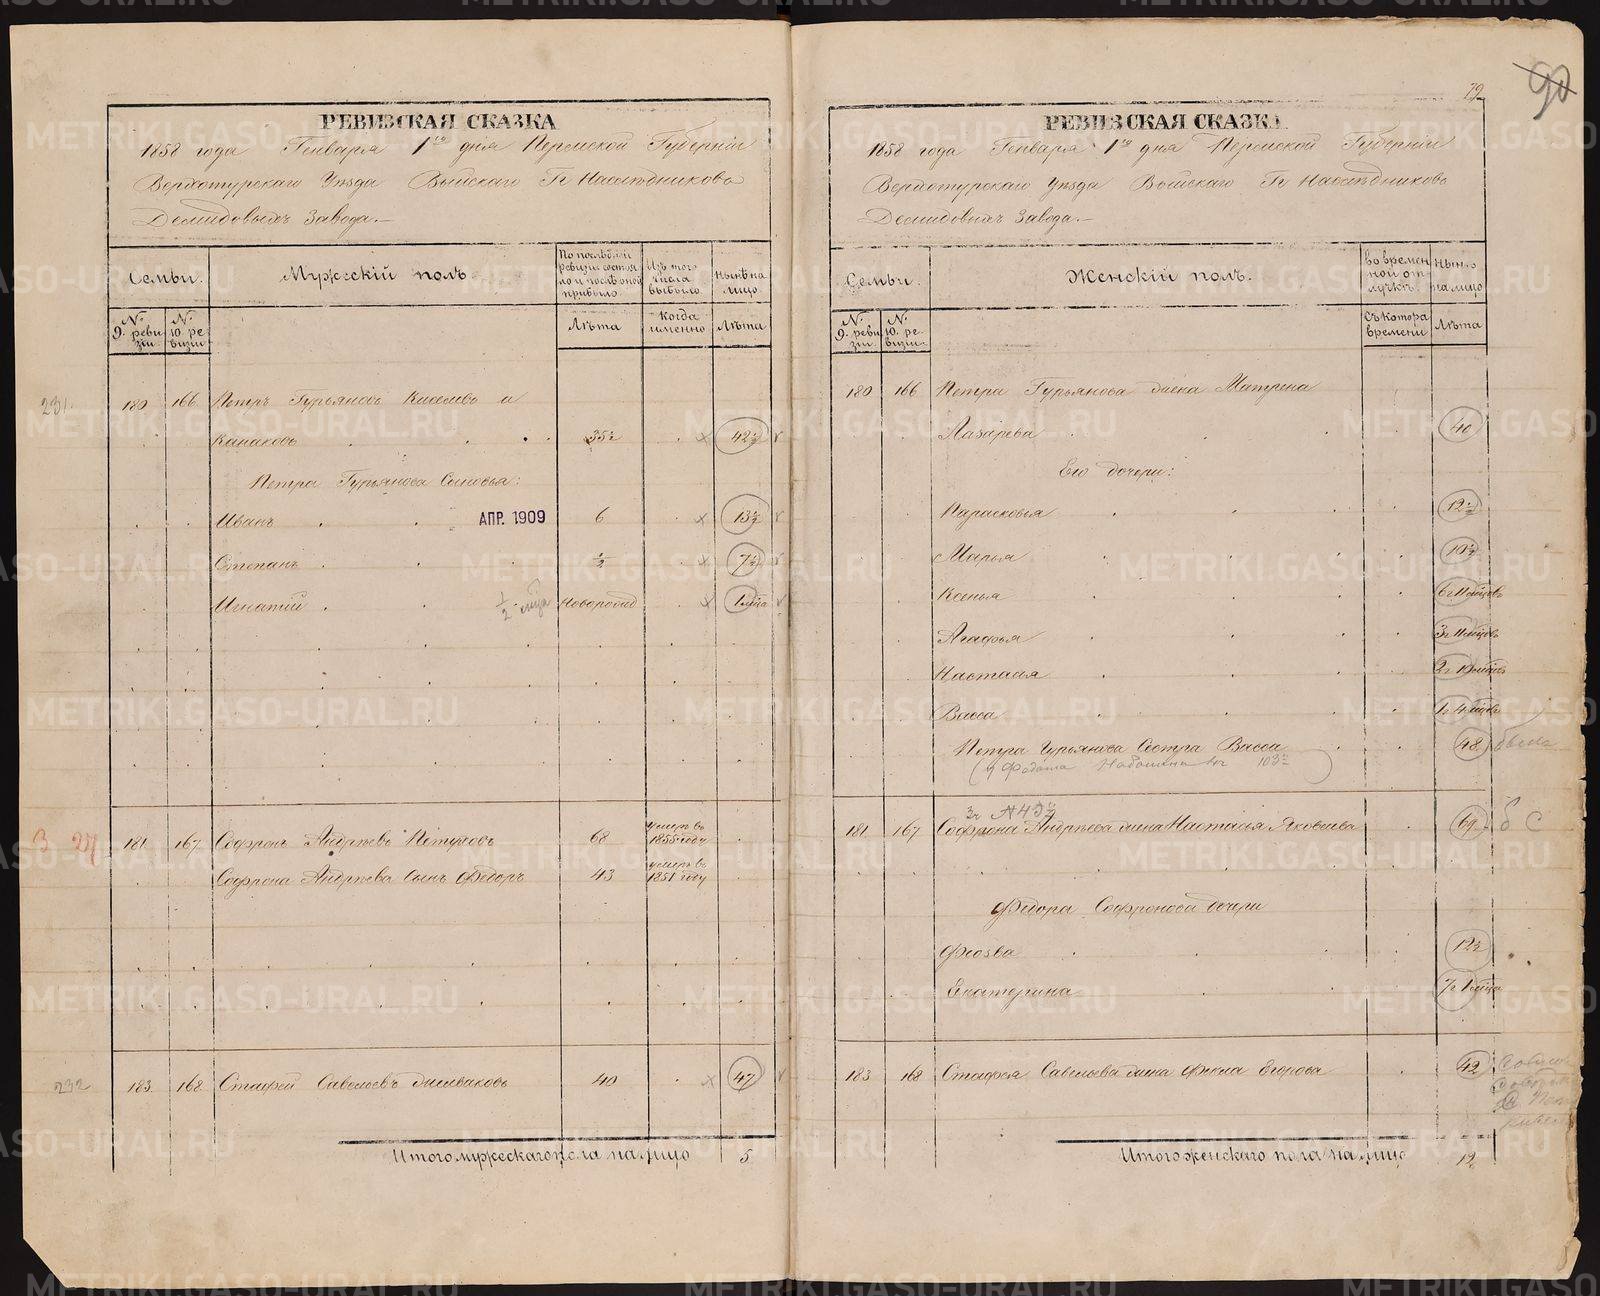 РЕВИЗСКАЯ СКАЗКА
1858 года Генваря 1го дня Пермской Губерніи
Верхотурскаго Уѣзда Выйскаго Гг Наслѣдниковъ
Демидовыхъ Завода.
Семьи.
Мужескій полъ.
По послѣдней ревизіи состояло и послѣ оной прибыло.
Изъ того числа выбыло
Нынѣ на лицо
№ 9. ревизіи.
№ 10. ревизіи.
Лѣта
Когда именно
Лѣта
231.
180 166 Петръ Гурьяновъ Киселевъ и
Канаковъ 35½ 42½
Петра Гурьянова Сыновья:
Иванъ АПР. 1909 6 13½
Степанъ ½ 7½
Игнатій ½ Новорожд
181 167 Софронъ Андрѣевъ Пѣтуховъ 68 умеръ въ 1855 году
Софрона Андрѣева Сынъ Ѳедоръ 43 умеръ въ 1851 году
232
183 168 Стафей Савельевъ 40 47
Итого мужескаго пола на лицо 5
79
90
РЕВИЗСКАЯ СКАЗКА
1858 года Генваря 1го дня Пермской Губерніи
Верхотурскаго Уѣзда Выйскаго Гг Наслѣдниковъ
Демидовыхъ Завода.
Семьи.
Женскій полъ.
Во временной отлучкѣ
Нынѣ на лицо
№ 9. ревизіи.
№ 10. ревизіи.
Съ котора времени
Лѣта
180 166 Петра Гурьянова жена Матрена
Лазарева 40
Его дочери:
Парасковья 12½
Марья 10½
Ксенья 6 г 11 мѣсцовъ
Агафья 3 г 11 мѣсцовъ
Настасья
Васса 1 г 4 мѣсцовъ
Петра Гурьянова Сестра Васса 48
181 167 Софрона Андрѣева жена Настасья Яковлева 69
Ѳедора Софронова дочери
Ѳіозва 12½
Екатерина
183 168 Стафея Савельева жена Ѳекла Егорова 42
Итого женскаго пола на лицо 12
METRIKI.GASO-URAL.RU